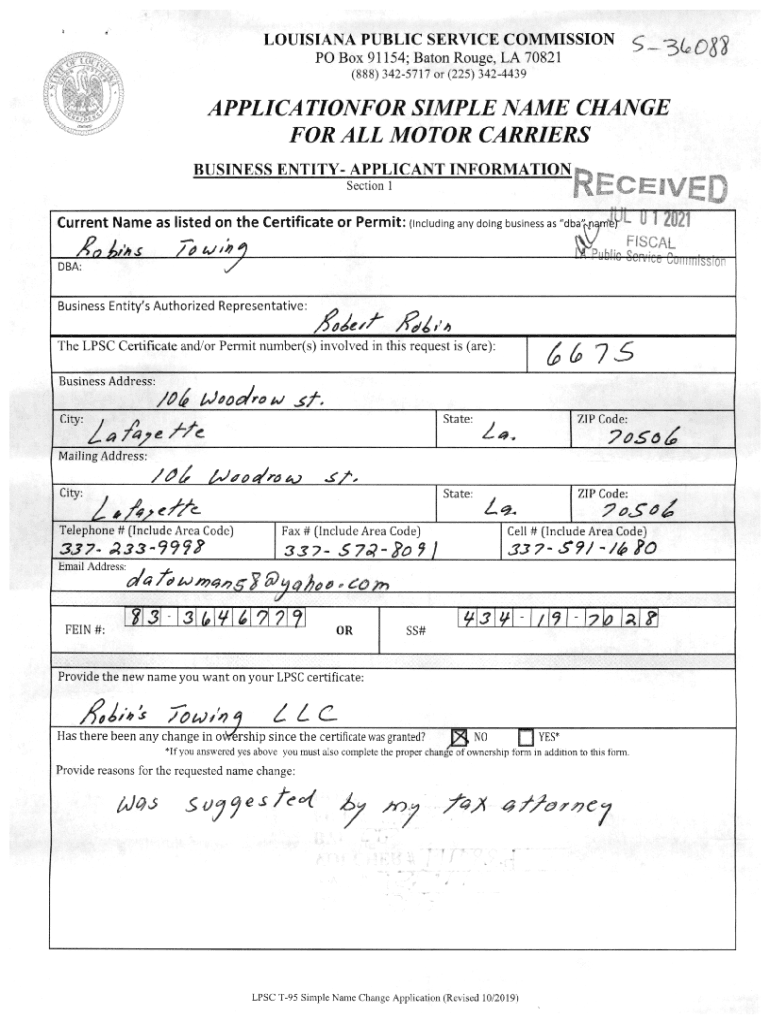 LOUISIANA PUBLIC SERVICE COMMISSION
S-36088
PO Box 91154; Baton Rouge, LA 70821
(888) 342-5717 or (225) 342-4439
APPLICATIONFOR SIMPLE NAME CHANGE
FOR ALL MOTOR CARRIERS
BUSINESS ENTITY- APPLICANT INFORMATION
Section 1
RECEIVED
JUL 01 2021
FISCAL
LA Public Service Commission
Current Name as listed on the Certificate or Permit: (Including any doing business as "dba" name)
Robins Towing
DBA:
Business Entity's Authorized Representative:
Robert Robin
The LPSC Certificate and/or Permit number(s) involved in this request is (are): 6675
Business Address:
106 Woodrow st.
City: Lafayette State: La. ZIP Code: 70506
Mailing Address:
106 Woodrow st.
City: Lafayette State: La. ZIP Code: 70506
Telephone # (Include Area Code) Fax # (Include Area Code) Cell # (Include Area Code)
337-233-9998 337-572-8091 337-591-1680
Email Address: datowman58@yahoo.com
FEIN #: 83-3646779 OR SS# 434-19-7028
Provide the new name you want on your LPSC certificate:
Robin's Towing LLC
Has there been any change in ownership since the certificate was granted? NO YES*
*If you answered yes above you must also complete the proper change of ownership form in addition to this form.
Provide reasons for the requested name change:
was suggested by my tax attorney
LPSC T-95 Simple Name Change Application (Revised 10/2019)